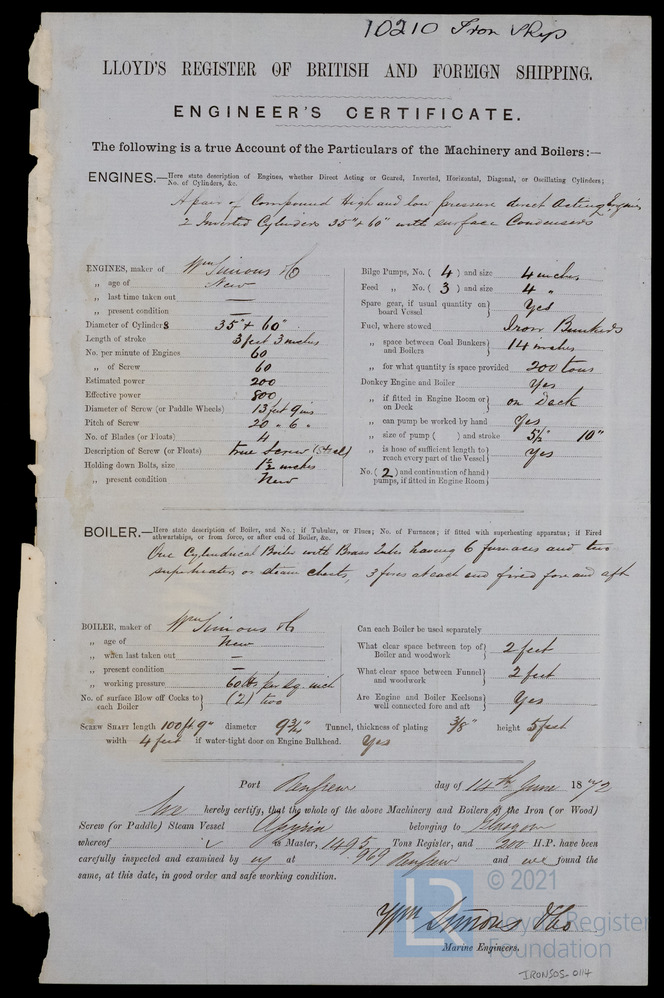 10210 Iron Ship
LLOYD'S REGISTER OF BRITISH AND FOREIGN SHIPPING.
ENGINEER'S CERTIFICATE.
The following is a true Account of the Particulars of the Machinery and Boilers:—
ENGINES.—Here state description of Engines, whether Direct Acting or Geared, Inverted, Horizontal, Diagonal, or Oscillating Cylinders;
No. of Cylinders, &c.
A pair of Compound High and low pressure direct Acting Engines
2 Inverted Cylinders 35" & 60" with surface Condensers
ENGINES, maker of Wm Simons & Co
„ age of New
„ last time taken out —
„ present condition —
Diameter of Cylinders 35" & 60"
Length of stroke 3 feet 3 inches
No. per minute of Engines 60
„ of Screw 60
Estimated power 200
Effective power 800
Diameter of Screw (or Paddle Wheels) 13 feet 9 ins
Pitch of Screw 20 „ 6 „
No. of Blades (or Floats) 4
Description of Screw (or Floats) true Screw (Steel)
Holding down Bolts, size 1½ inches
„ present condition New
Bilge Pumps, No. ( 4 ) and size 4 inches
Feed „ No. ( 3 ) and size 4 „
Spare gear, if usual quantity on board Vessel } Yes
Fuel, where stowed Iron Bunkers
„ space between Coal Bunkers and Boilers } 14 inches
„ for what quantity is space provided 200 tons
Donkey Engine and Boiler Yes
„ if fitted in Engine Room or on Deck } on Deck
„ can pump be worked by hand Yes
„ size of pump ( ) and stroke 5½" 10"
„ is hose of sufficient length to reach every part of the Vessel } Yes
No. ( 2 ) and continuation of hand pumps, if fitted in Engine Room }
BOILER.—Here state description of Boiler, and No.; if Tubular, or Flues; No. of Furnaces; if fitted with superheating apparatus; if Fired
athwartships, or from fore, or after end of Boiler, &c.
One Cylindrical Boiler with Brass Tubes having 6 furnaces and two
superheaters or steam chests, 3 fires at each end fired fore and aft
BOILER, maker of Wm Simons & Co
„ age of New
„ when last taken out —
„ present condition —
„ working pressure 60 lbs per Sq. inch
No. of surface Blow off Cocks to each Boiler } (2) two
Can each Boiler be used separately
What clear space between top of Boiler and woodwork } 2 feet
What clear space between Funnel and woodwork } 2 feet
Are Engine and Boiler Keelsons well connected fore and aft } Yes
SCREW SHAFT length 100 ft 9" diameter 9¾" Tunnel, thickness of plating 3/8" height 5 feet
width 4 feet if water-tight door on Engine Bulkhead. Yes
Port Renfrew day of 14th June 1872
We hereby certify, that the whole of the above Machinery and Boilers of the Iron (or Wood)
Screw (or Paddle) Steam Vessel belonging to Glasgow
whereof is Master, 1495 969 Tons Register, and 200 H.P. have been
carefully inspected and examined by us at Renfrew and we found the
same, at this date, in good order and safe working condition.
Wm Simons & Co
Marine Engineers.
© 2021
LR
Lloyd's Register
Foundation
IRONSOS-0114